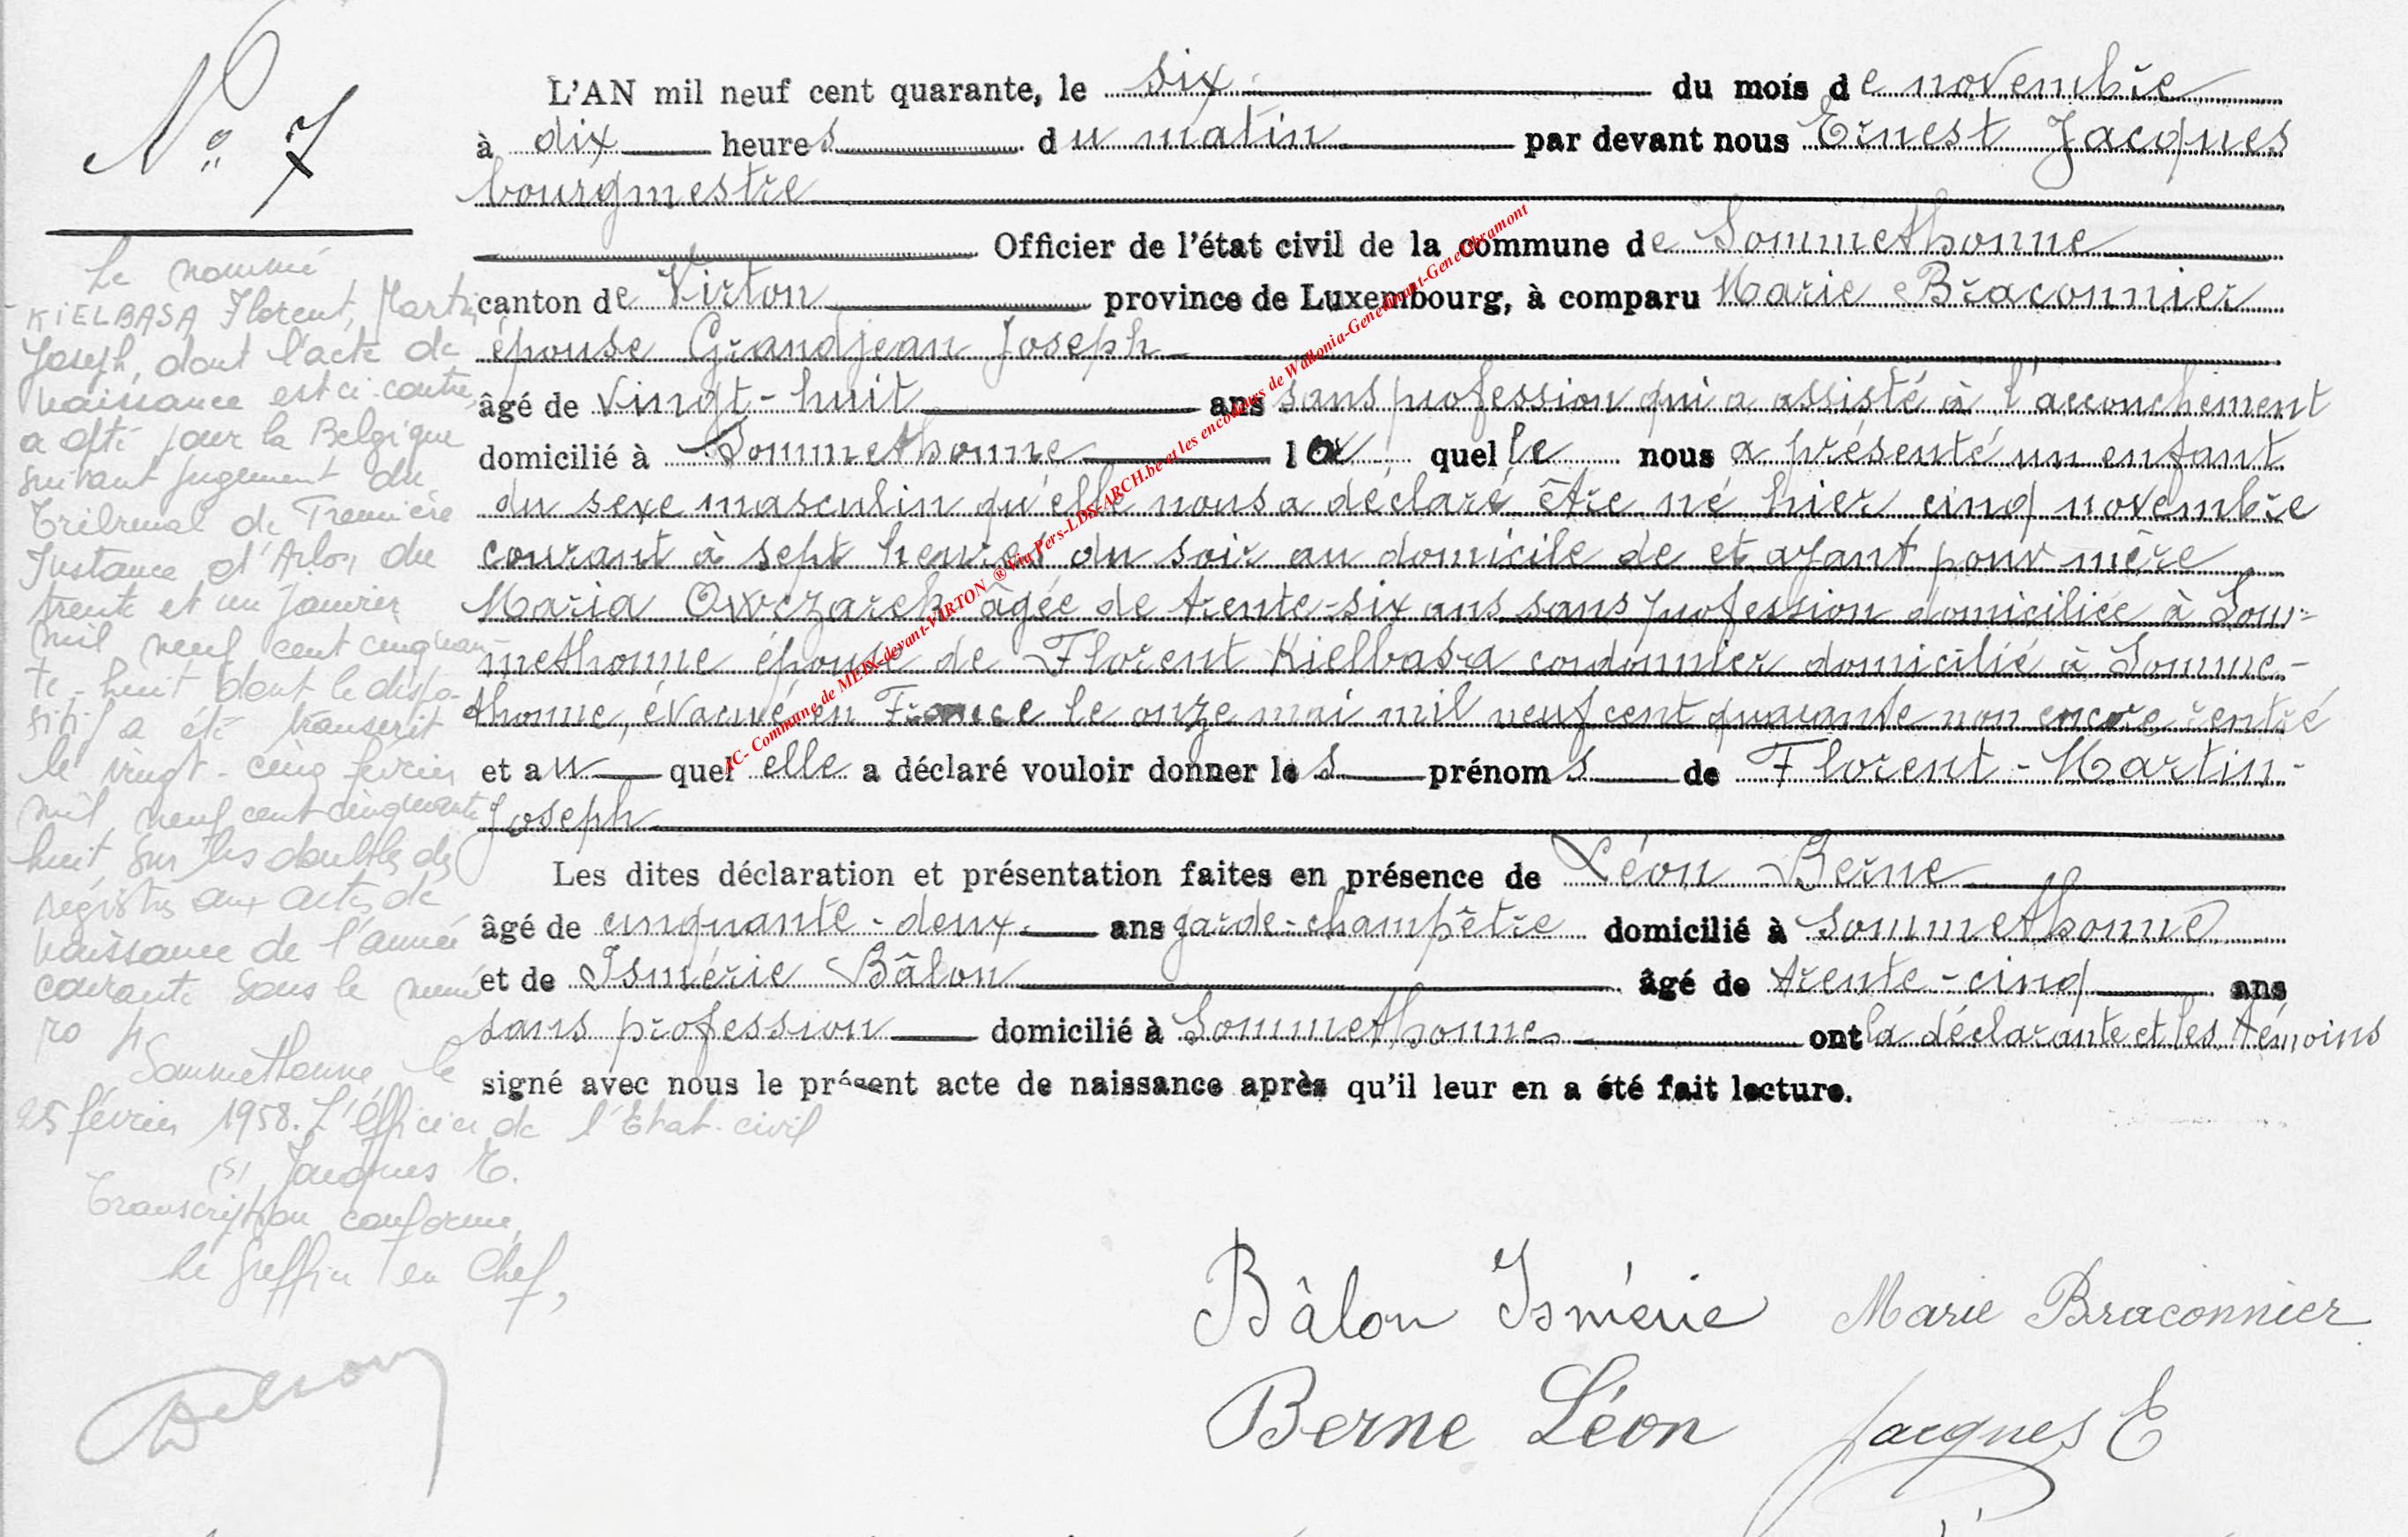 N° 7
L'AN mil neuf cent quarante, le six du mois de novembre
à dix heures du matin par devant nous Ernest Jacques
bourgmestre
Officier de l'état civil de la commune de Sommethonne
canton de Virton province de Luxembourg, à comparu Marie Braconnier
épouse Grandjean Joseph
âgé de vingt-huit ans sans profession qui a assisté à l'accouchement
domicilié à Sommethonne laquelle nous a présenté un enfant
du sexe masculin qu'elle nous a déclaré être né hier cinq novembre
courant à sept heures du soir au domicile de et ayant pour mère
Maria Owczarek âgée de trente-six ans sans profession domiciliée à Som-
methonne épouse de Florent Kielbasa cordonnier domicilié à Somme-
thonne, évacué en France le onze mai mil neuf cent quarante non encore rentré
et au quel elle a déclaré vouloir donner les prénoms de Florent-Martin-
Joseph
Les dites déclaration et présentation faites en présence de Léon Berne
âgé de cinquante-deux ans garde-champêtre domicilié à Sommethonne
et de Ismérie Bâlon âgé de trente-cinq ans
sans profession domicilié à Sommethonne ont la déclarante et les témoins
signé avec nous le présent acte de naissance après qu'il leur en a été fait lecture.
Le nommé
KIELBASA Florent, Martin
Joseph, dont l'acte de
naissance est ci-contre,
a opté pour la Belgique
suivant jugement du
Tribunal de Première
Instance d'Arlon du
trente et un Janvier
mil neuf cent cinquan-
te-huit dont le dispo-
sitif a été transcrit
le vingt-cinq février
mil neuf cent cinquante
huit sur les doubles des
registres aux actes de
naissance de l'année
courante sous le numé
ro 4
Sommethonne, le
25 février 1958. L'Officier de l'Etat-civil
(s) Jacques E.
Transcription conforme,
Le Greffier en Chef,
Bâlon Ismérie Marie Braconnier
Berne Léon Jacques E
IC- Commune de MEIX-devant-VIRTON ® Via Pers-LDS-ARCH.be et les encodeurs de Wallonia-Genedinant-GeneLibramont